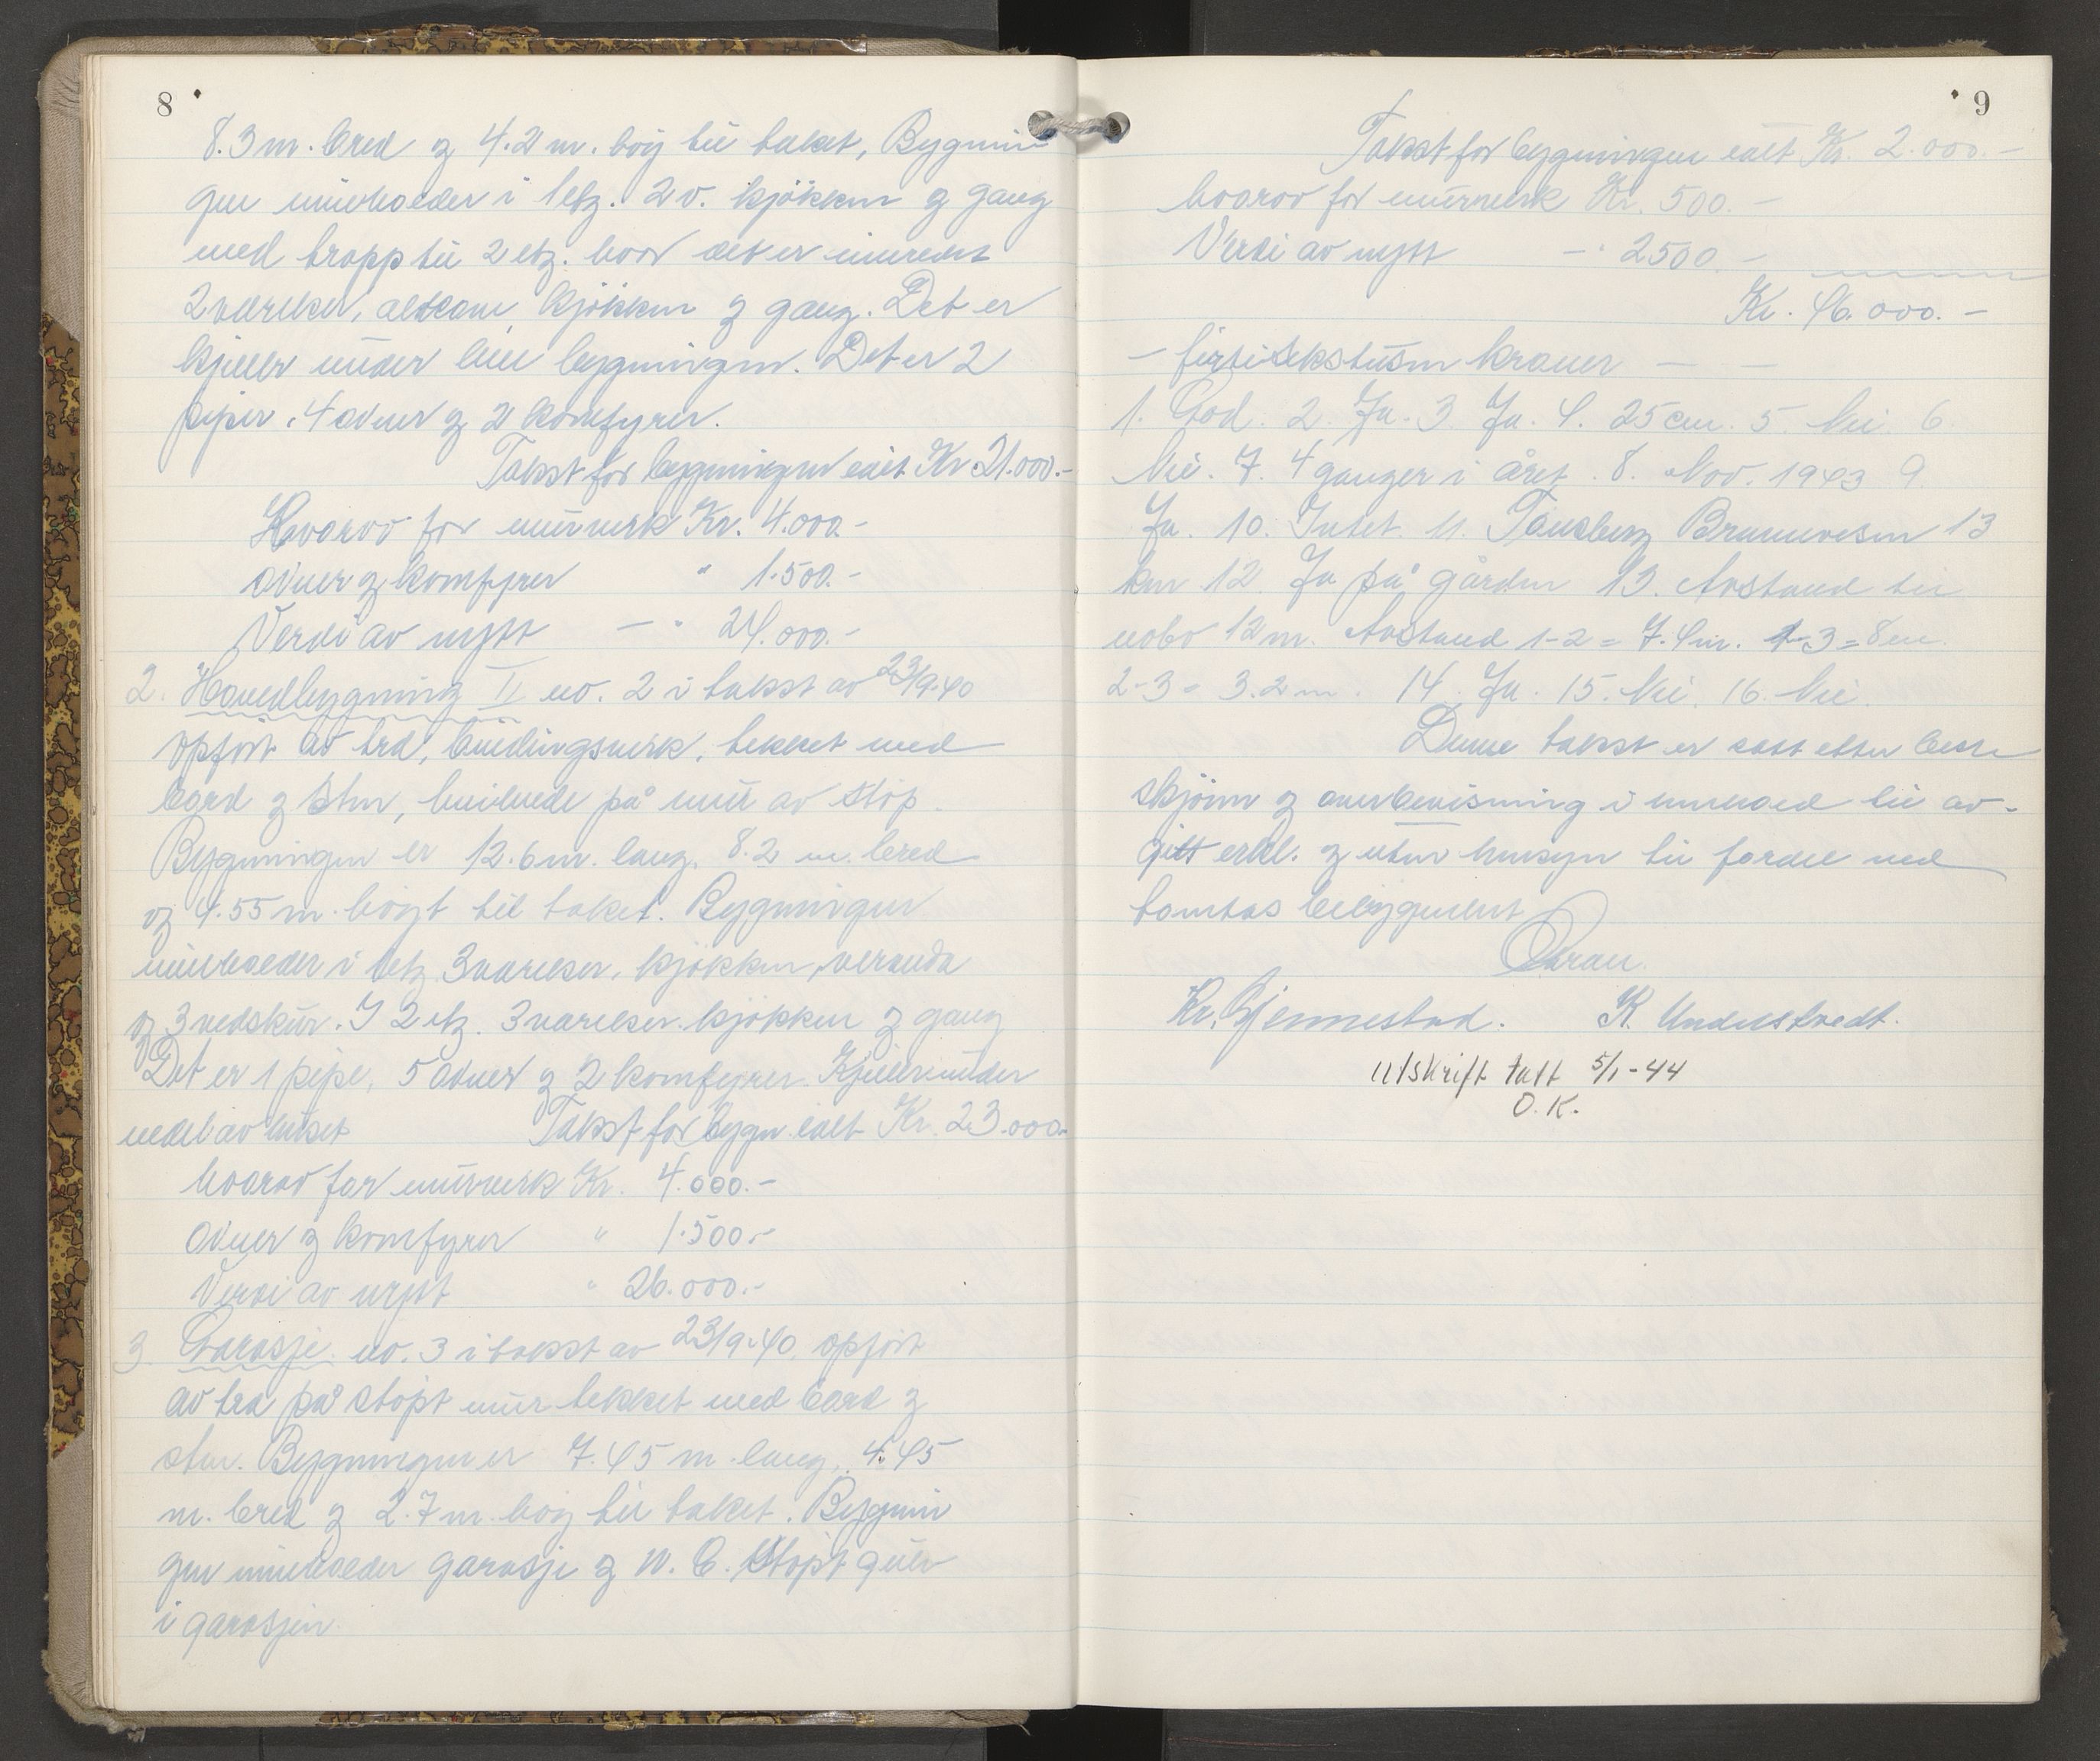 8
8.3 m. bred og 4.2 m. høy til taket, Bygnin
gen inneholder i 1 etg. 2 v. kjøkken og gang
med trapp til 2 etg. hvor det er innredet
2 værelser, altkove, kjøkken og gang. Det er
kjeller under hele bygningen. Det er 2
piper, 4 ovner og 2 komfyrer.
Takst for bygningen ialt Kr. 21.000.-
Hvorav for murverk Kr. 4.000.-
ovner og komfyrer " 1.500.-
Verdi av nytt — " 24.000.-
2. Hovedbygning II no. 2 i takst av 23/9-40
opført av tre, bindingsverk, tekket med
bord og sten, hvilende på mur av støp.
Bygningen er 12.6 m. lang, 8.2 m. bred
og 4.55 m. høyt til taket. Bygningen
inneholder i 1 etg. 3 værelser, kjøkken, veranda
og 3 vedskur. I 2 etg. 3 værelser. kjøkken og gang
Det er 1 pipe, 5 ovner og 2 komfyrer. Kjeller under
en del av huset Takst for bygn. ialt Kr. 23.000.-
hvorav for murverk Kr. 4.000.-
ovner og komfyrer " 1.500.-
Verdi av nytt " 26.000.-
3. Garasje no. 3 i takst av 23/9-40, opført
av tre på støpt mur tekket med bord og
sten. Bygningen er 7.45 m. lang, 4.45
m. bred og 2.7 m. høy til taket. Bygnin
gen inneholder garasje og W. C. Støpt gulv
i garasjen.
9
Takst for bygningen ialt Kr. 2.000.-
hvorav for murverk Kr. 500.-
Verdi av nytt — " 2500.-
Kr. 46.000.-
- førtisekstusen kroner - -
1. God. 2. Ja. 3. Ja. 4. 25 cm. 5. Nei. 6.
Nei. 7. 4 ganger i året. 8. Nov. 1943 9.
Ja. 10. Intet. 11. Tønsberg Brannvesen 13
km 12. Ja på gården 13. Avstand til
nabo 12 m. Avstand 1-2 = 7.4 m. 1-3 = 8 m.
2-3 = 3.2 m. 14. Ja. 15. Nei. 16. Nei.
Denne takst er satt etter beste
skjønn og overbevisning i henhold til av-
gitt erkl. og uten hensyn til fordel ved
tomtas beliggenhet
Kr. Gjennestad. K. Understvedt.
Utskrift tatt 5/1-44
O. K.